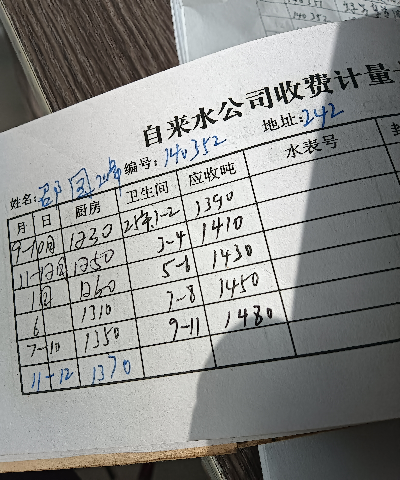 自来水公司收费计量
姓名: 编号: 140352 地址: 242
月 日 厨房 卫生间 应收吨 水表号
9-10月 1230 25年1-2 1390
11-12月 1250 3-4 1410
1月 1260 5-6 1430
6 1310 7-8 1450
7-10 1350 9-11 1480
11-12 1370
140352